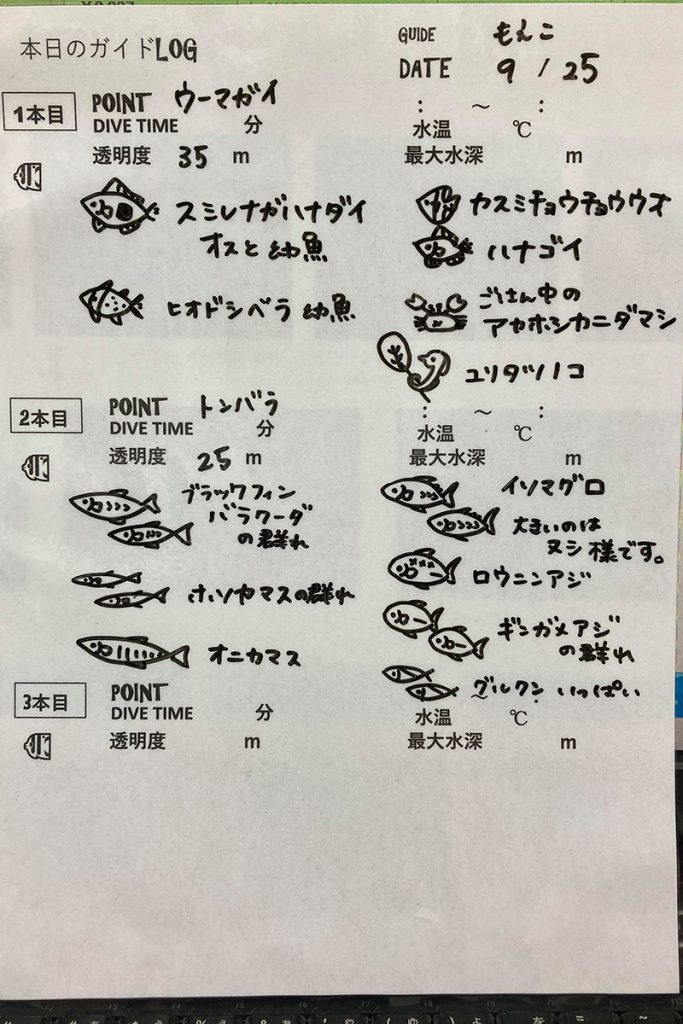 本日のガイドLOG
GUIDE もんこ
DATE 9 / 25
1本目 POINT ウーマガイ
: ～ :
DIVE TIME 分
水温 ℃
透明度 35 m
最大水深 m
スミレナガハナダイ
オスと幼魚
ヒオドシベラ 幼魚
カスミチョウチョウウオ
ハナゴイ
ごはん中の
アカホシカニダマシ
ユリタツノコ
2本目 POINT トンバラ
: ～ :
DIVE TIME 分
水温 ℃
透明度 25 m
最大水深 m
ブラックフィン
バラクーダ
の群れ
ホソカマスの群れ
オニカマス
イソマグロ
大きいのは
ヌシ様です。
ロウニンアジ
ギンガメアジ
の群れ
グルクン いっぱい
3本目 POINT
DIVE TIME 分
水温 ℃
透明度 m
最大水深 m